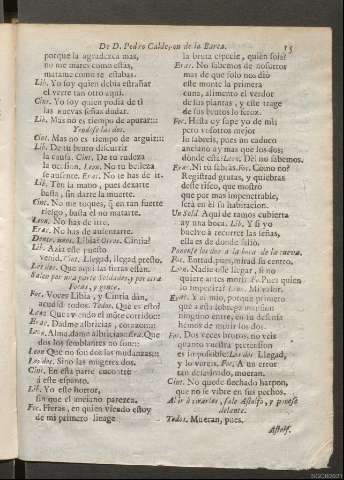 De D. Pedro Calderon de la Barca.
15
porque la agradezca mas,
no me mates como estas,
matame como te estabas.
Lib. Yo soy quien debia estrañar
el verte tan otro aqui.
Cint. Yo soy quien podia de ti
las nuevas señas dudar.
Lib. Mas no es tiempo de apurar:::
Yendose las dos.
Cint. Mas no es tiempo de arguir:::
Lib. De tu bruto discurrir
la causa. Cint. De tu rudeza
la ocasion. Leon. No tu belleza
se ausente. Erac. No te has de ir.
Lib. Ten la mano, pues dexarte
basta, sin darte la muerte.
Cint. No me toques, que en tan fuerte
riesgo, basta el no matarte.
Leon. No has de irte.
Erac. No has de ausentarte.
Dentr. unos. Libia? Otros. Cintia?
Lib. Azia este puesto
venid. Cint. Llegad, llegad presto.
Los dos. Que aqui las fieras estàn.
Salen por una parte Soldados, y por otra
Focas, y gente.
Foc. Voces Libia, y Cintia dàn,
acudid todos. Todos. Que es esto?
Erac. Dadme albricias, corazon:::
Leon. Alma dame albricias::: Erac. Que
dos los semblantes no son:::
Leon. Que no son dos las mudanzas:::
Los dos. Sino las mugeres dos.
Cint. En esta parte encontrè
à este espanto.
Lib. Yo este horror,
sin que el mesmo parezca.
Foc. Fieras, en quien viendo estoy
de mi primero linage
la bruta especie, quien sois?
Erac. No sabemos de nosotros
mas de que solo nos diò
este monte la primera
cuna, alimento el verdor
de sus plantas, y este trage
de sus brutos lo feroz.
Foc. Hasta oy supe yo de mi;
pero vosotros mejor
lo sabreis, pues un caduco
anciano ay mas que los dos:
dònde està? Leon. Dèl no sabemos.
Erac. Ni tù sabràs. Foc. Como no?
Registrad grutas, y quiebras
deste risco, que mostrò
que por mas impenetrable,
serà en èl su habitacion.
Un Sold. Aqui de ramos cubierta
ay una boca. Lib. Y si yo
buelvo à recorrer las señas,
ella es de donde saliò.
Ponense los dos à la boca de la cueva.
Foc. Entrad, pues, mirad su centro.
Leon. Nadie osse llegar, si no
quiere antes morir. Foc. Pues quien
lo impedirà? Leon. Mi valor.
Erac. Y el mio, porque primero
ninguno entre, en su defensa
hemos de morir los dos.
Foc. Dos veces brutos, no veis
quanto vuestra pretension
es imposible? Los dos. Llegad,
y lo vereis. Foc. A un error
tan desvalido, mueran.
Cint. No quede flechado harpon,
que no se vibre en sus pechos.
Al ir à tirarlos, sale Astolfo, y ponese
delante.
Todos. Mueran, pues.
Astolf.